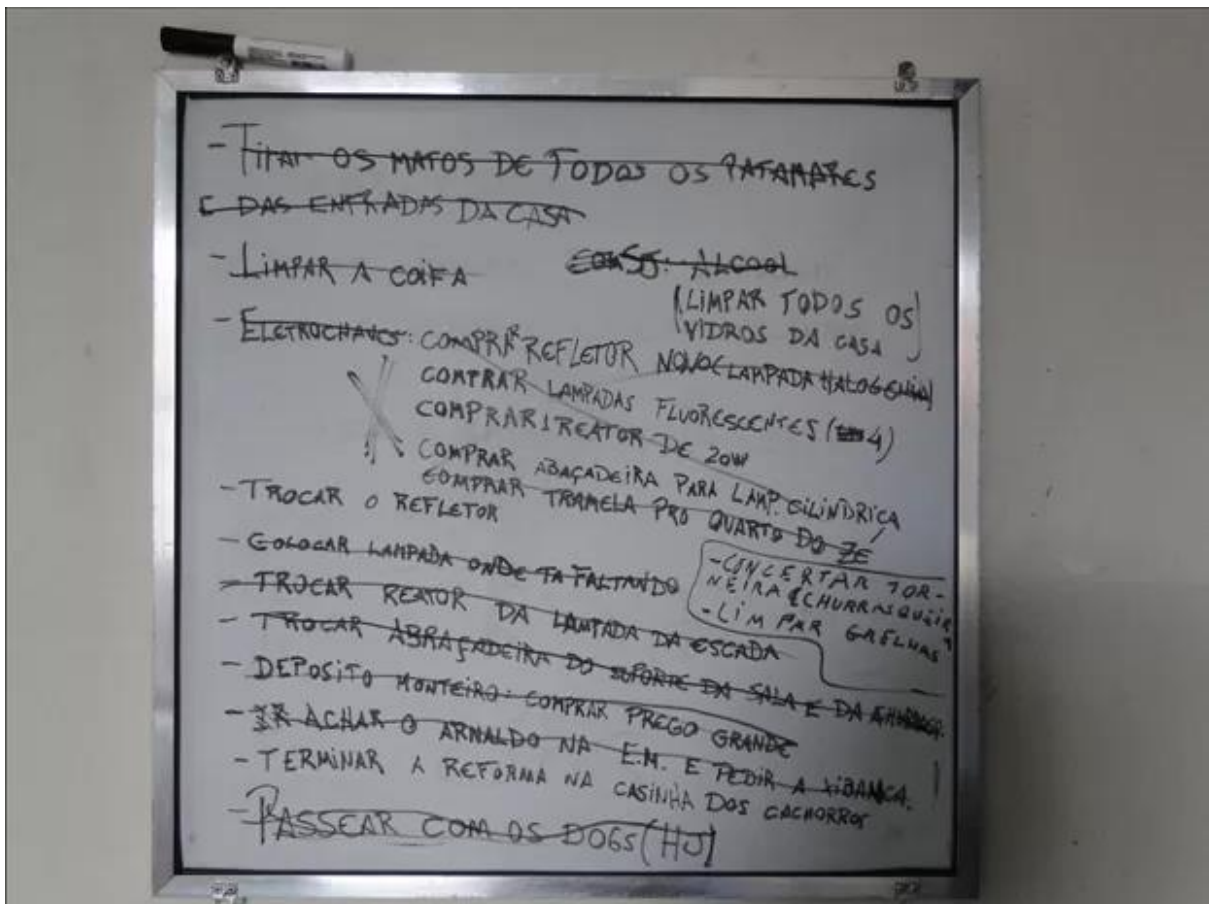 - TIRAR OS MATOS DE TODOS OS PATAMARES
E DAS ENTRADAS DA CASA
- LIMPAR A COIFA
ALCOOL
(LIMPAR TODOS OS
VIDROS DA CASA)
- ELETROCHAVES: COMPRAR REFLETOR NOVO (LAMPADA HALOGENIA)
COMPRAR LAMPADAS FLUORESCENTES (4)
COMPRAR 1 REATOR DE 20W
COMPRAR ABAÇADEIRA PARA LAMP. CILINDRICA
COMPRAR TRAMELA PRO QUARTO DO ZÉ
- TROCAR O REFLETOR
- COLOCAR LAMPADA ONDE TA FALTANDO
- CONCERTAR TOR-
NEIRA (CHURRASQUEIRA
- LIMPAR GRELHAS
- TROCAR REATOR DA LAMPADA DA ESCADA
- TROCAR ABRAÇADEIRA DO SUPORTE DA SALA E DA
- DEPOSITO MONTEIRO: COMPRAR PREGO GRANDE
- IR ACHAR O ARNALDO NA E.M. E PEDIR A XIBANCA.
- TERMINAR A REFORMA NA CASINHA DOS CACHORROS
- PASSEAR COM OS DOGS (HJ)